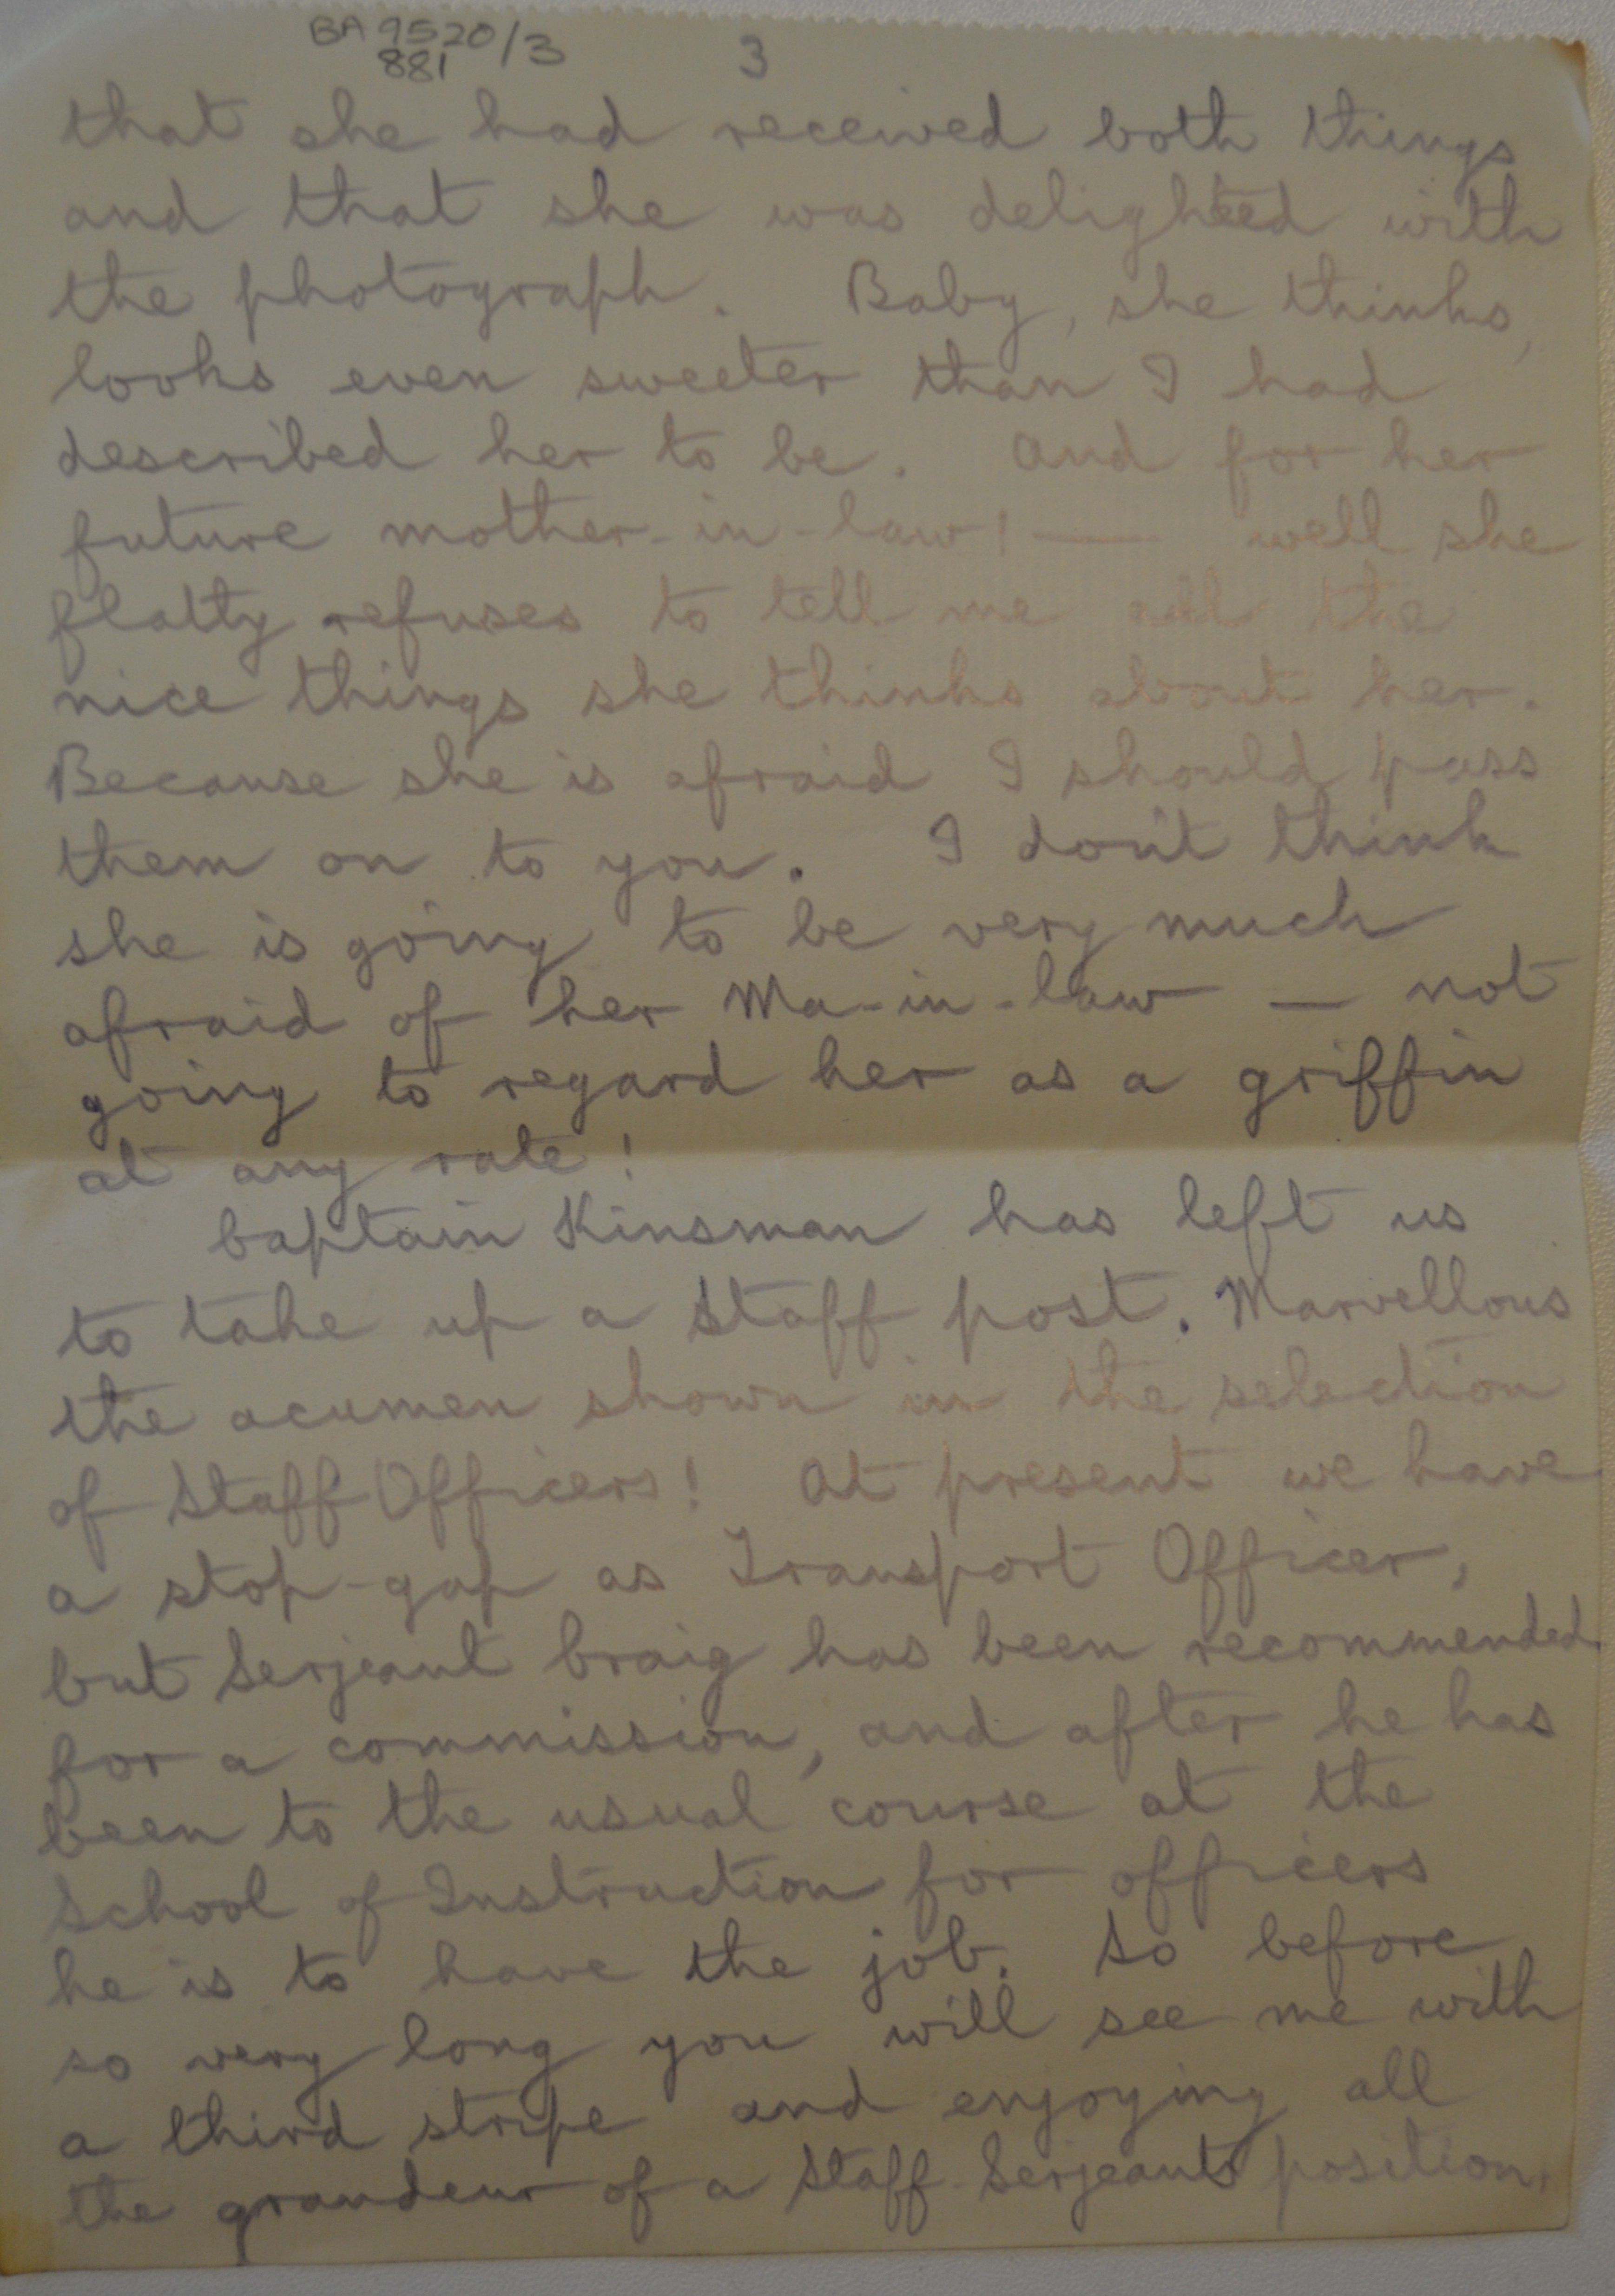 BA 9520/3
881
3
that she had received both things
and that she was delighted with
the photograph. Baby, she thinks,
looks even sweeter than I had
described her to be. And for her
future mother-in-law! — well she
flatly refuses to tell me all the
nice things she thinks about her.
Because she is afraid I should pass
them on to you. I don't think
she is going to be very much
afraid of her Ma-in-law — not
going to regard her as a griffin
at any rate!
Captain Kinsman has left us
to take up a Staff post. Marvellous
the acumen shown in the selection
of Staff Officers! At present we have
a stop-gap as Transport Officer,
but Serjeant Craig has been recommended
for a commission, and after he has
been to the usual course at the
School of Instruction for officers
he is to have the job. So before
so very long you will see me with
a third stripe and enjoying all
the grandeur of a Staff-Serjeants position.